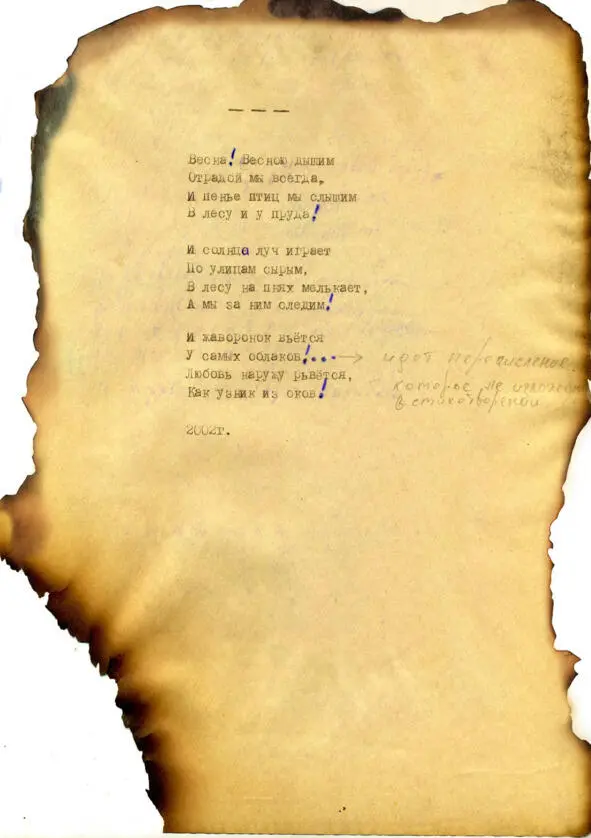 — — —
Весна! Весною дышим
Отрадой мы всегда,
И пенье птиц мы слышим
В лесу и у пруда!
И солнца луч играет
По улицам сырым,
В лесу на пнях мелькает,
А мы за ним следим!
И жаворонок вьётся
У самых облаков!... → идёт перечисление,
Любовь наружу рвётся,
которое не
Как узник из оков!
в стихотворении
2002г.